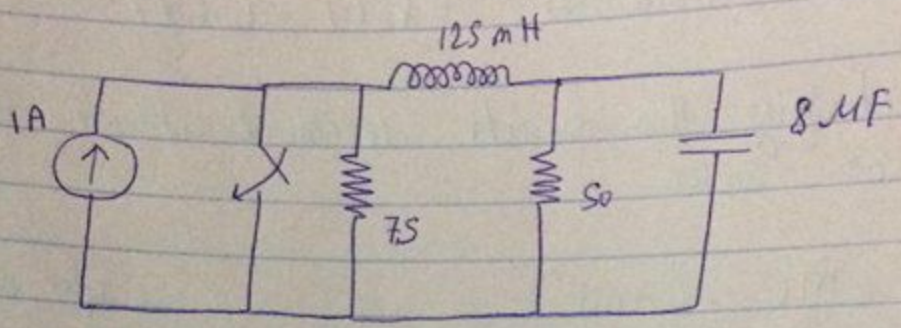 125 mH
1A
8 MF
75
50